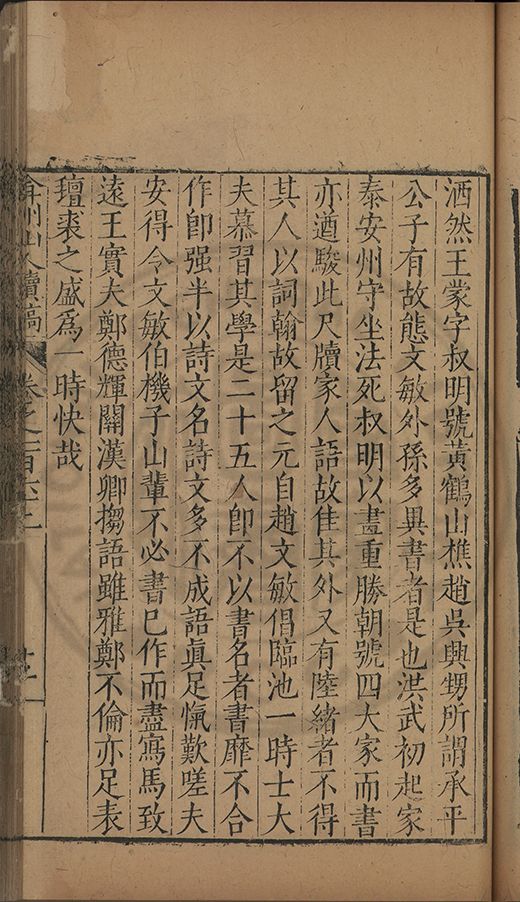 洒然王蒙字叔明號黃鶴山樵趙吳興甥所謂承平
公子有故態文敏外孫多異書者是也洪武初起家
泰安州守坐法死叔明以畫重勝朝號四大家而書
亦遒駿此尺牘家人語故佳其外又有陸緒者不得
其人以詞翰故留之元自趙文敏倡臨池一時士大
夫慕習其學是二十五人卽不以書名者書靡不合
作卽强半以詩文名詩文多不成語眞足愾歎嗟夫
安得令文敏伯機子山輩不必書巳作而盡寫馬致
遠王實夫鄭德輝關漢卿搊語雖雅鄭不倫亦足表
氊裘之盛爲一時快哉
弇州山人續稿 卷之一百六十二